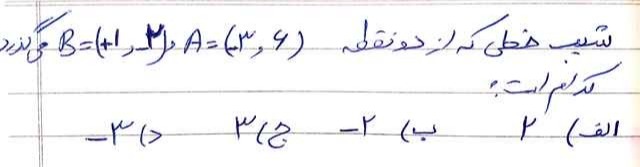 شیب خطی که از دو نقطه A=(-۳, ۶) و B=(+۱, -۲) می‌گذرد
کدام است؟
الف) ۲ ب) -۲ ج) ۳ د) -۳